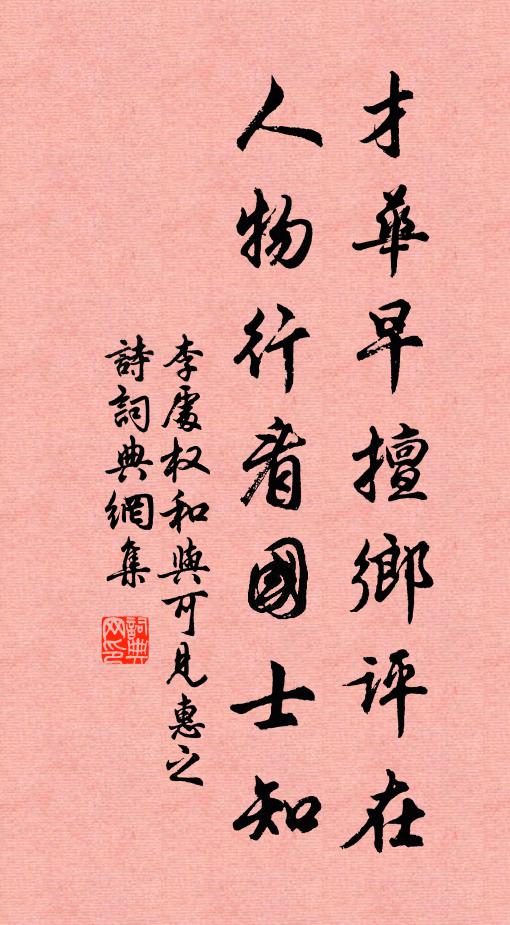 才華早擅鄉評在
人物行看國士知
李處权和與可見惠之
詩詞典網集
詞典网印